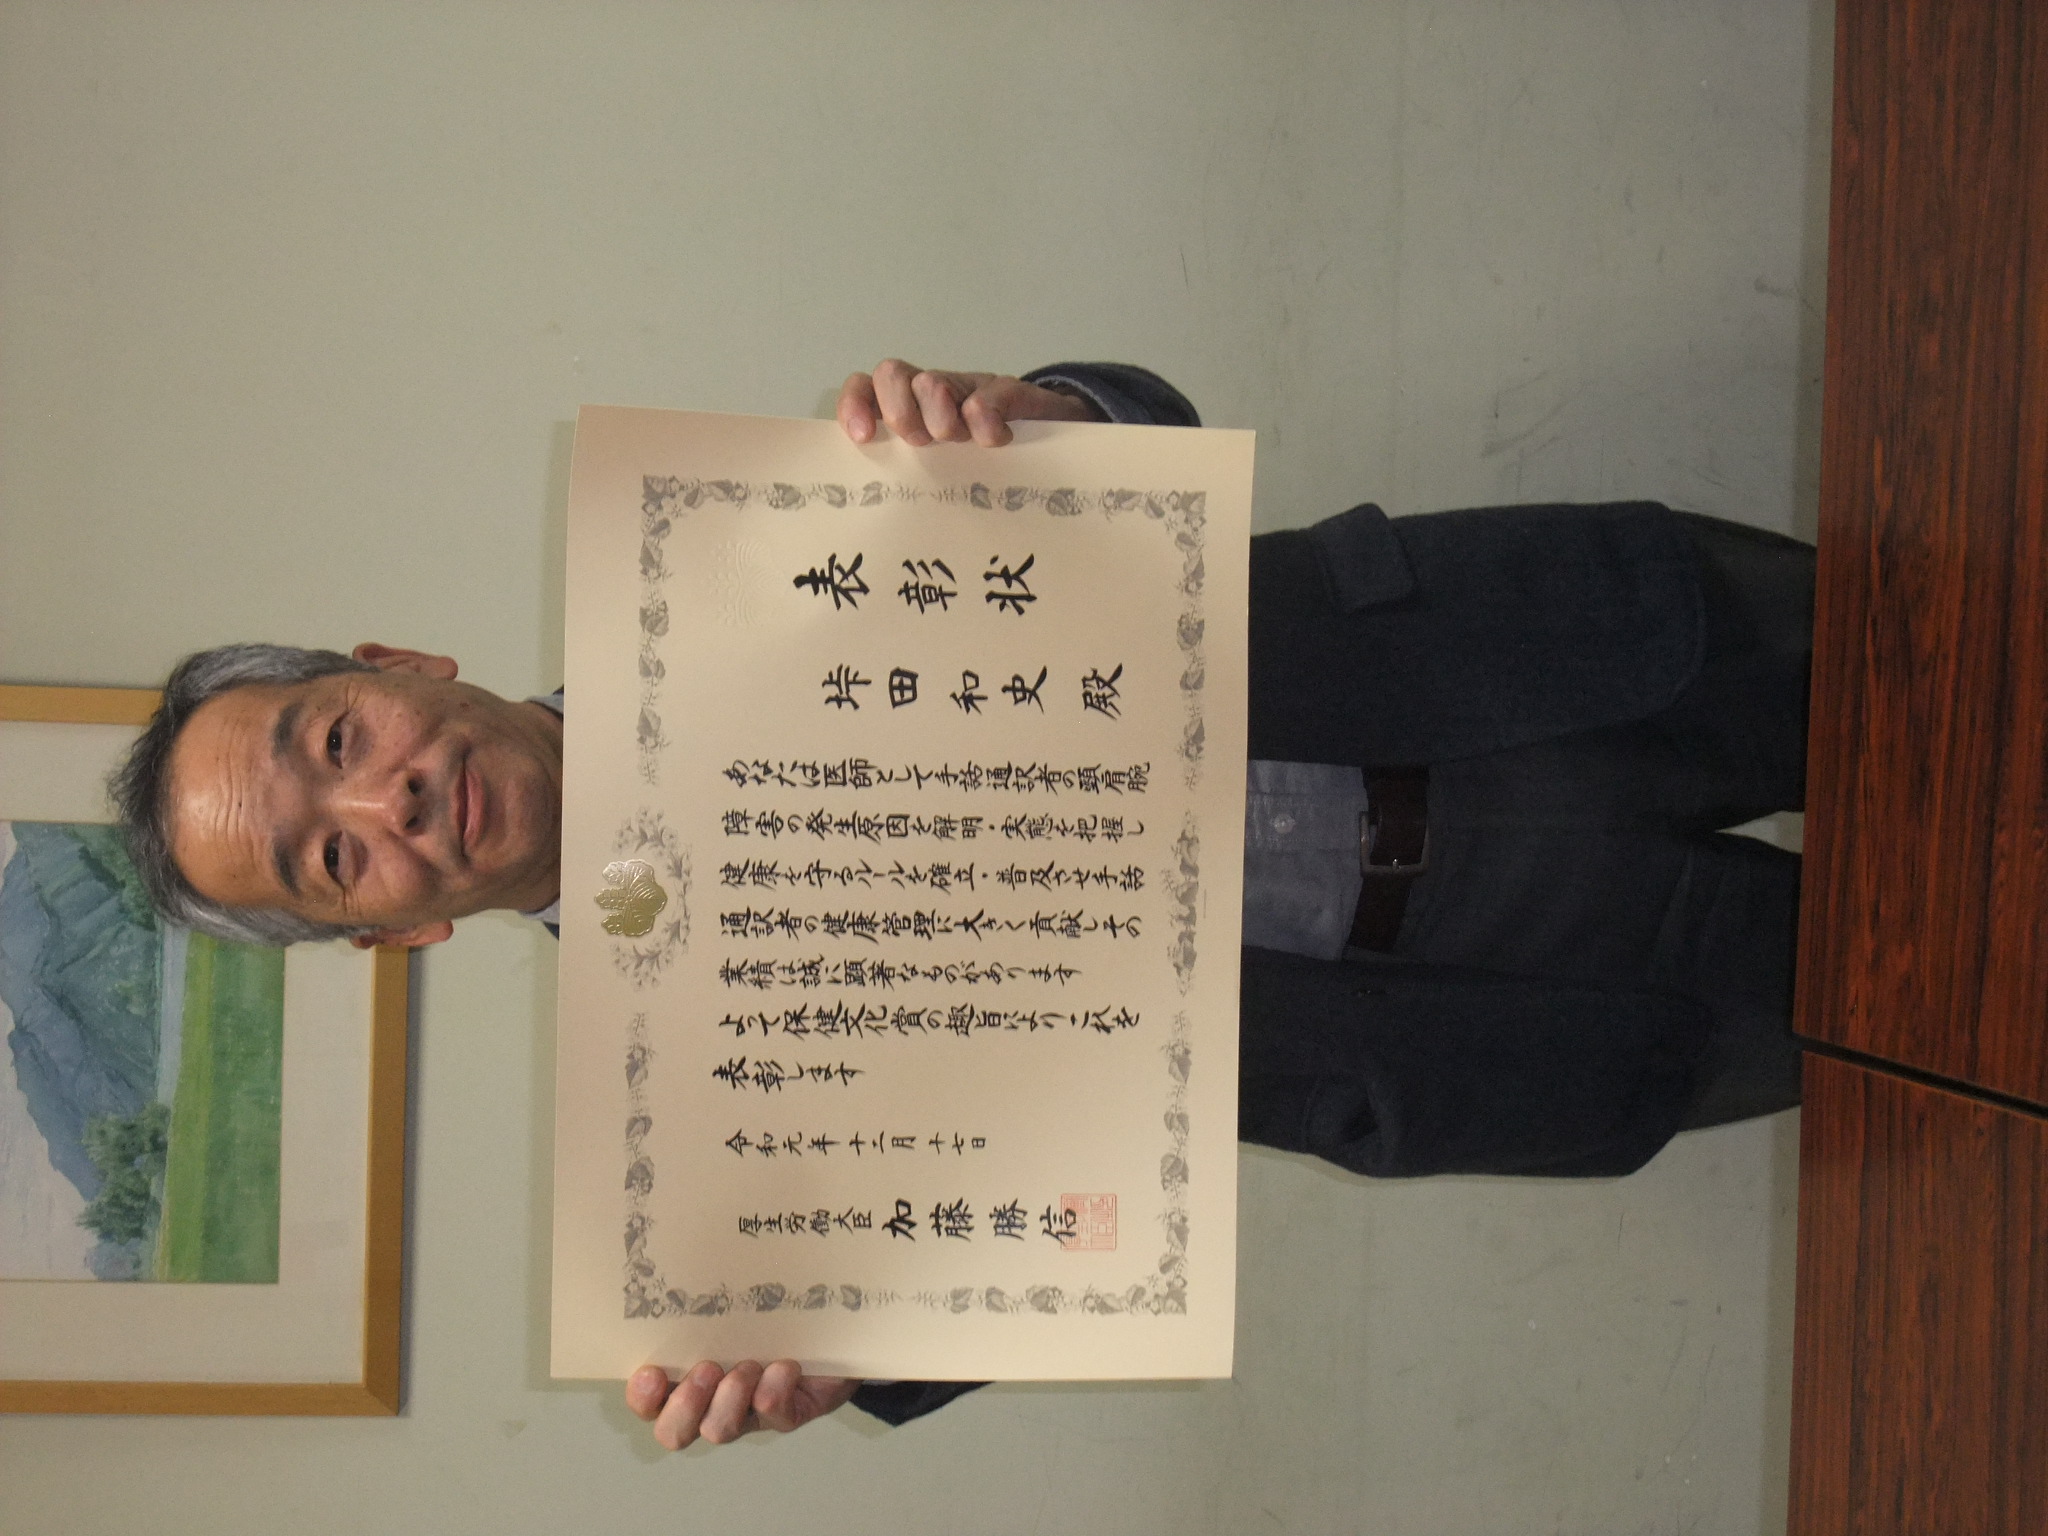 表彰状
垰田和史殿
あなたは医師として手話通訳者の頸肩腕
障害の発生原因を解明・実態を把握し
健康を守るルールを確立・普及させ手話
通訳者の健康管理に大きく貢献しその
業績は誠に顕著なものがあります
よって保健文化賞の趣旨によりこれを
表彰します
令和元年十二月十七日
厚生労働大臣 加藤勝信